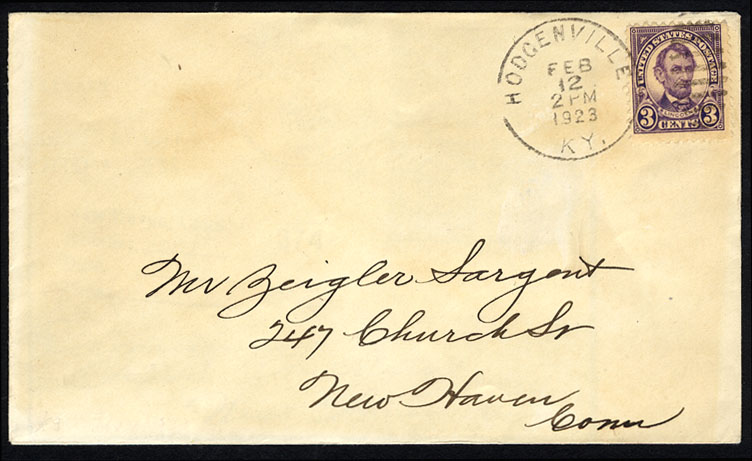 HODGENVILLE
FEB
12
2 PM
1923
KY.
UNITED STATES POSTAGE
LINCOLN
3 CENTS 3
Mr Zeigler Sargent
247 Church St
New Haven
Conn